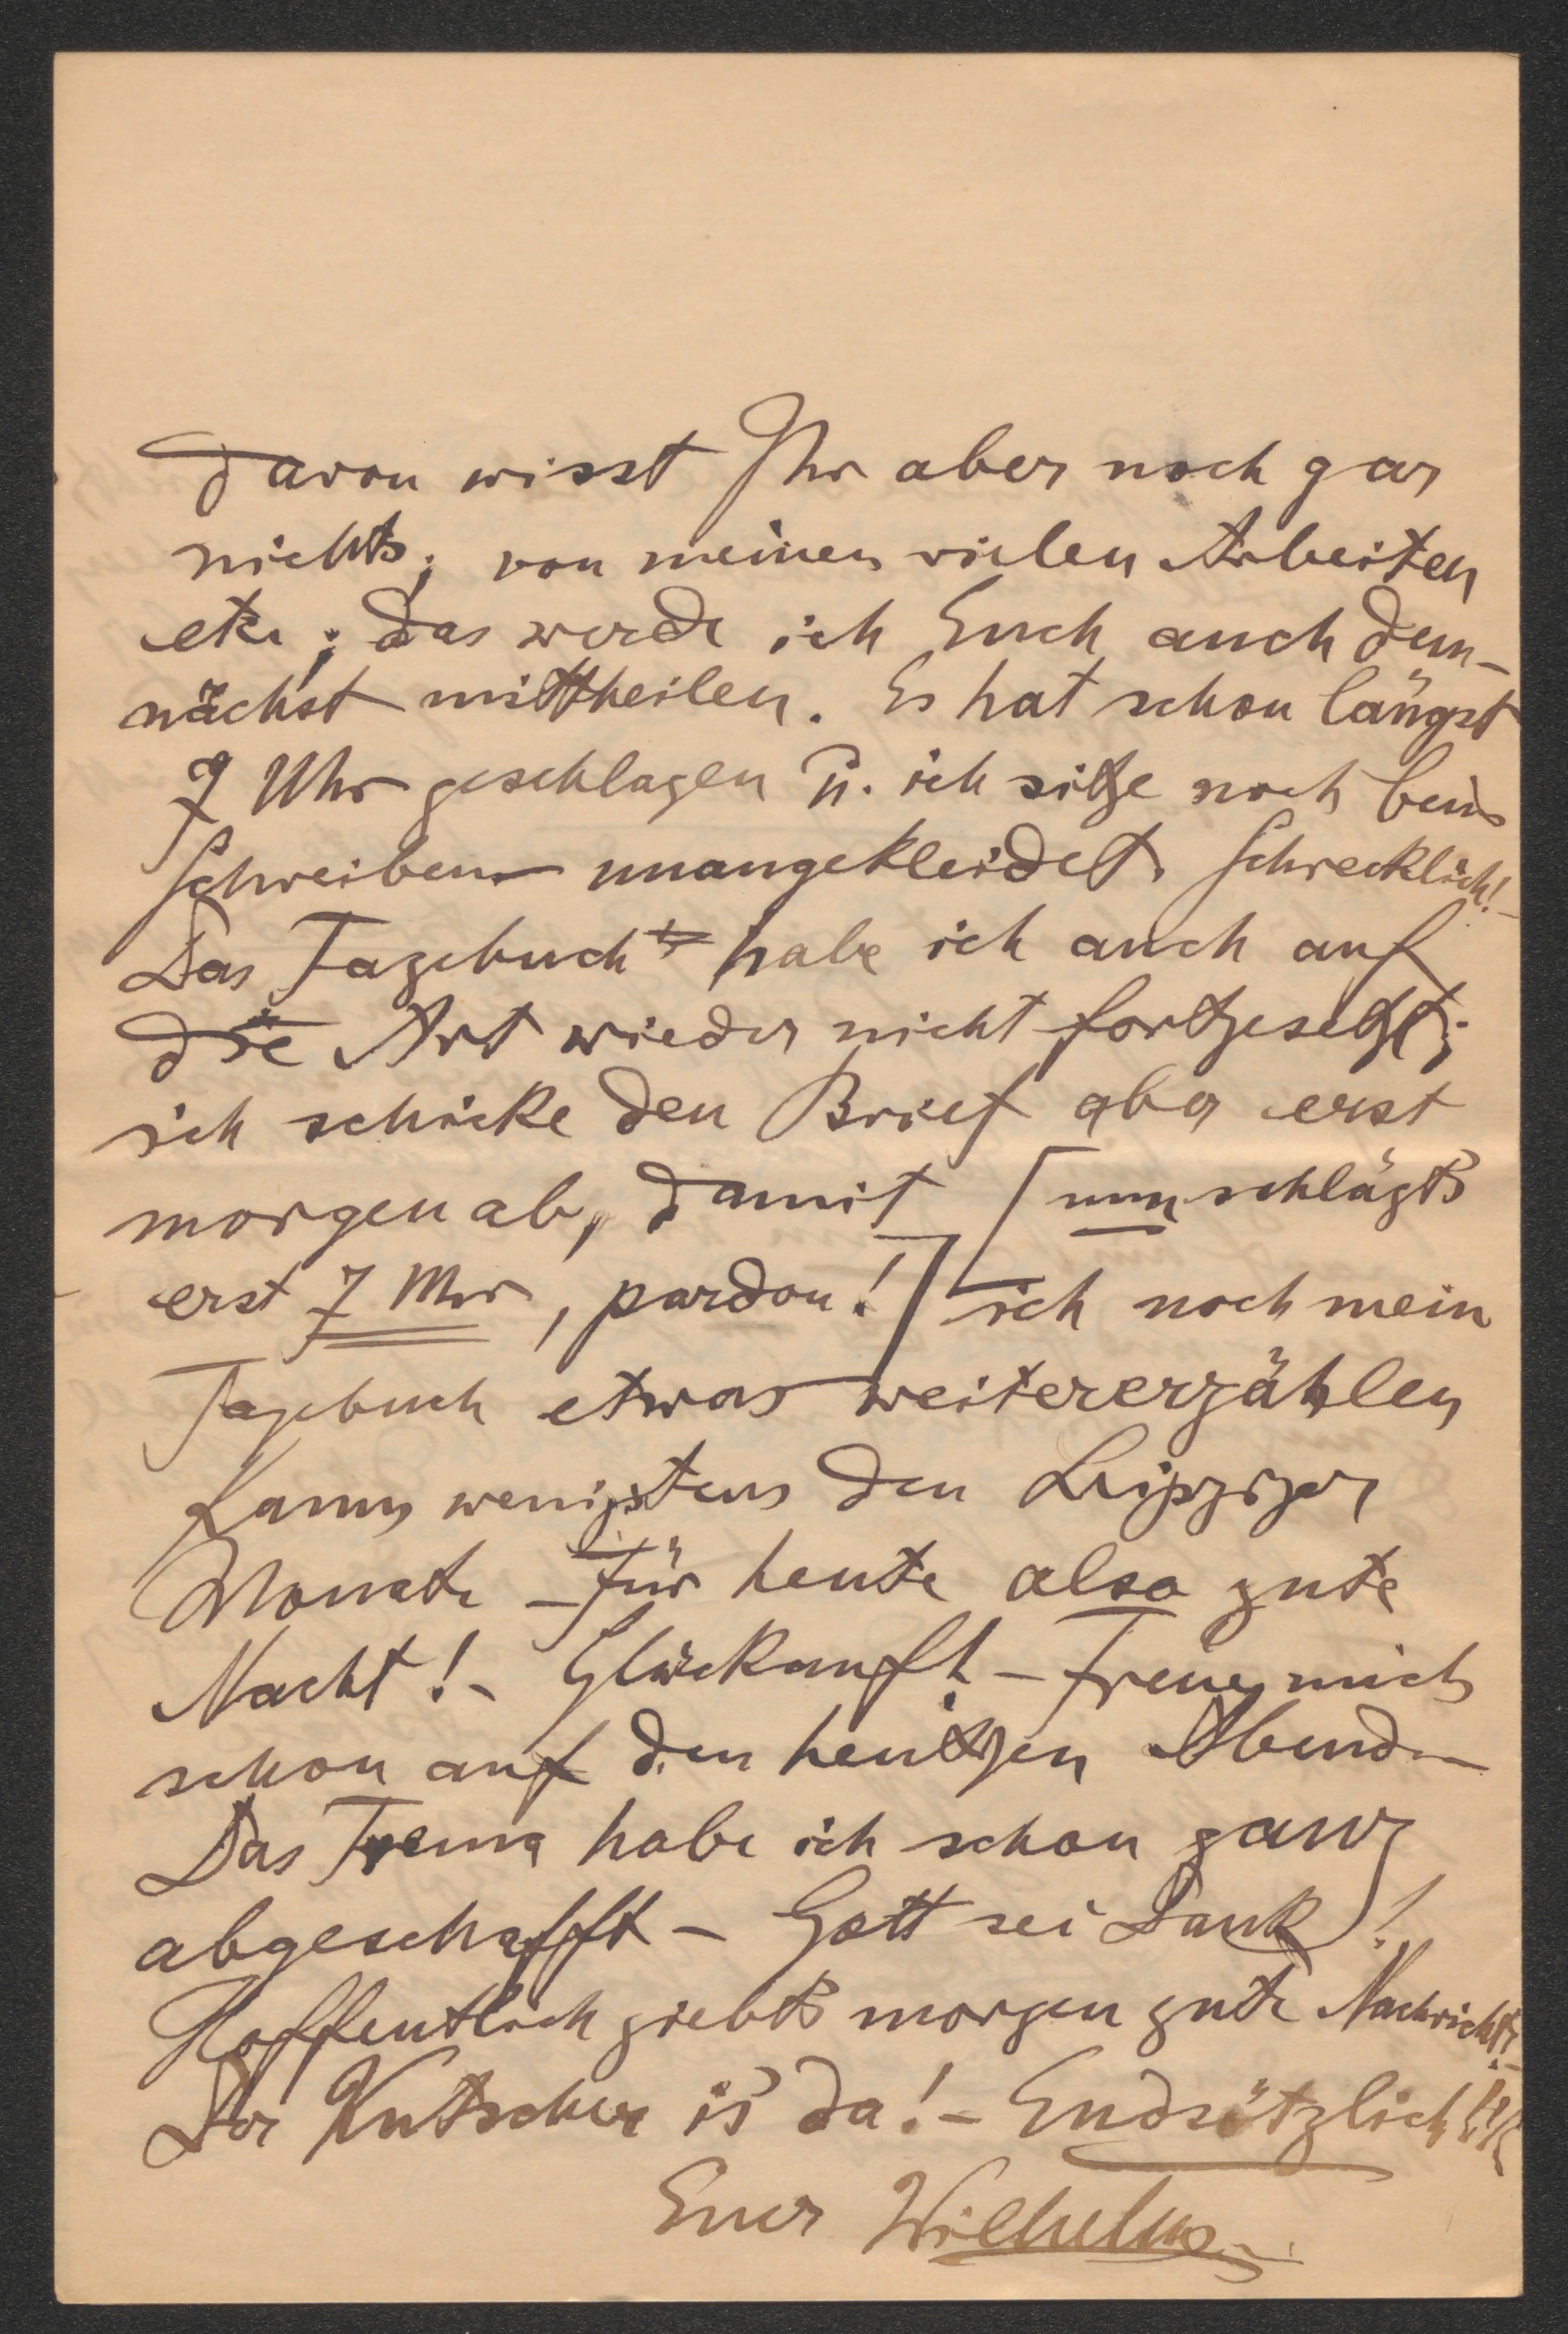 davon wisst Ihr aber noch gar
nichts; von meinen vielen Arbeiten
etc; das werde ich Euch auch dem-
nächst mittheilen. Es hat schon längst
7 Uhr geschlagen u. ich sitze noch beim
Schreiben unangekleidet. Schrecklich! -
Das Tagebuch habe ich auch auf
die Art wieder nicht fortgesetzt;
ich schicke den Brief aber erst
morgen ab, damit [nun schlägts
erst 7 Uhr, pardon!] ich noch mein
Tagebuch etwas weitererzählen
kann, wenigstens den Leipziger
Monate - Für heute also gute
Nacht! - Glückauf! - Freue mich
schon auf den heutigen Abend -
Das Trema habe ich schon ganz
abgeschafft - Gott sei Dank!
Hoffentlich giebts morgen gute Nachricht! -
Der Kutscher is da! - Endsützlich!!!
Euer Wilhelm